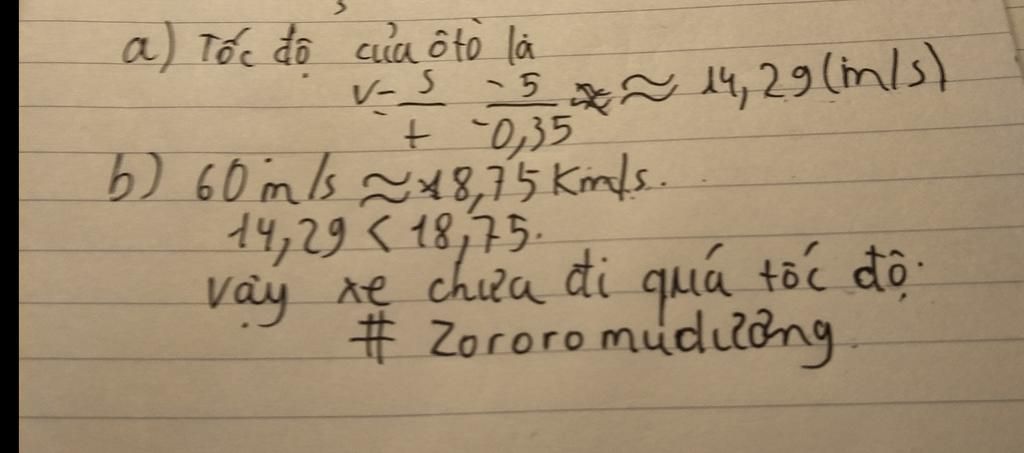 a) Tốc độ của ôtô là
v = s/t = 5/0,35 ≈ 14,29 (m/s)
b) 60 m/s ≈ 18,75 Km/s.
14,29 < 18,75.
vậy xe chưa đi quá tốc độ.
# Zororomudường.